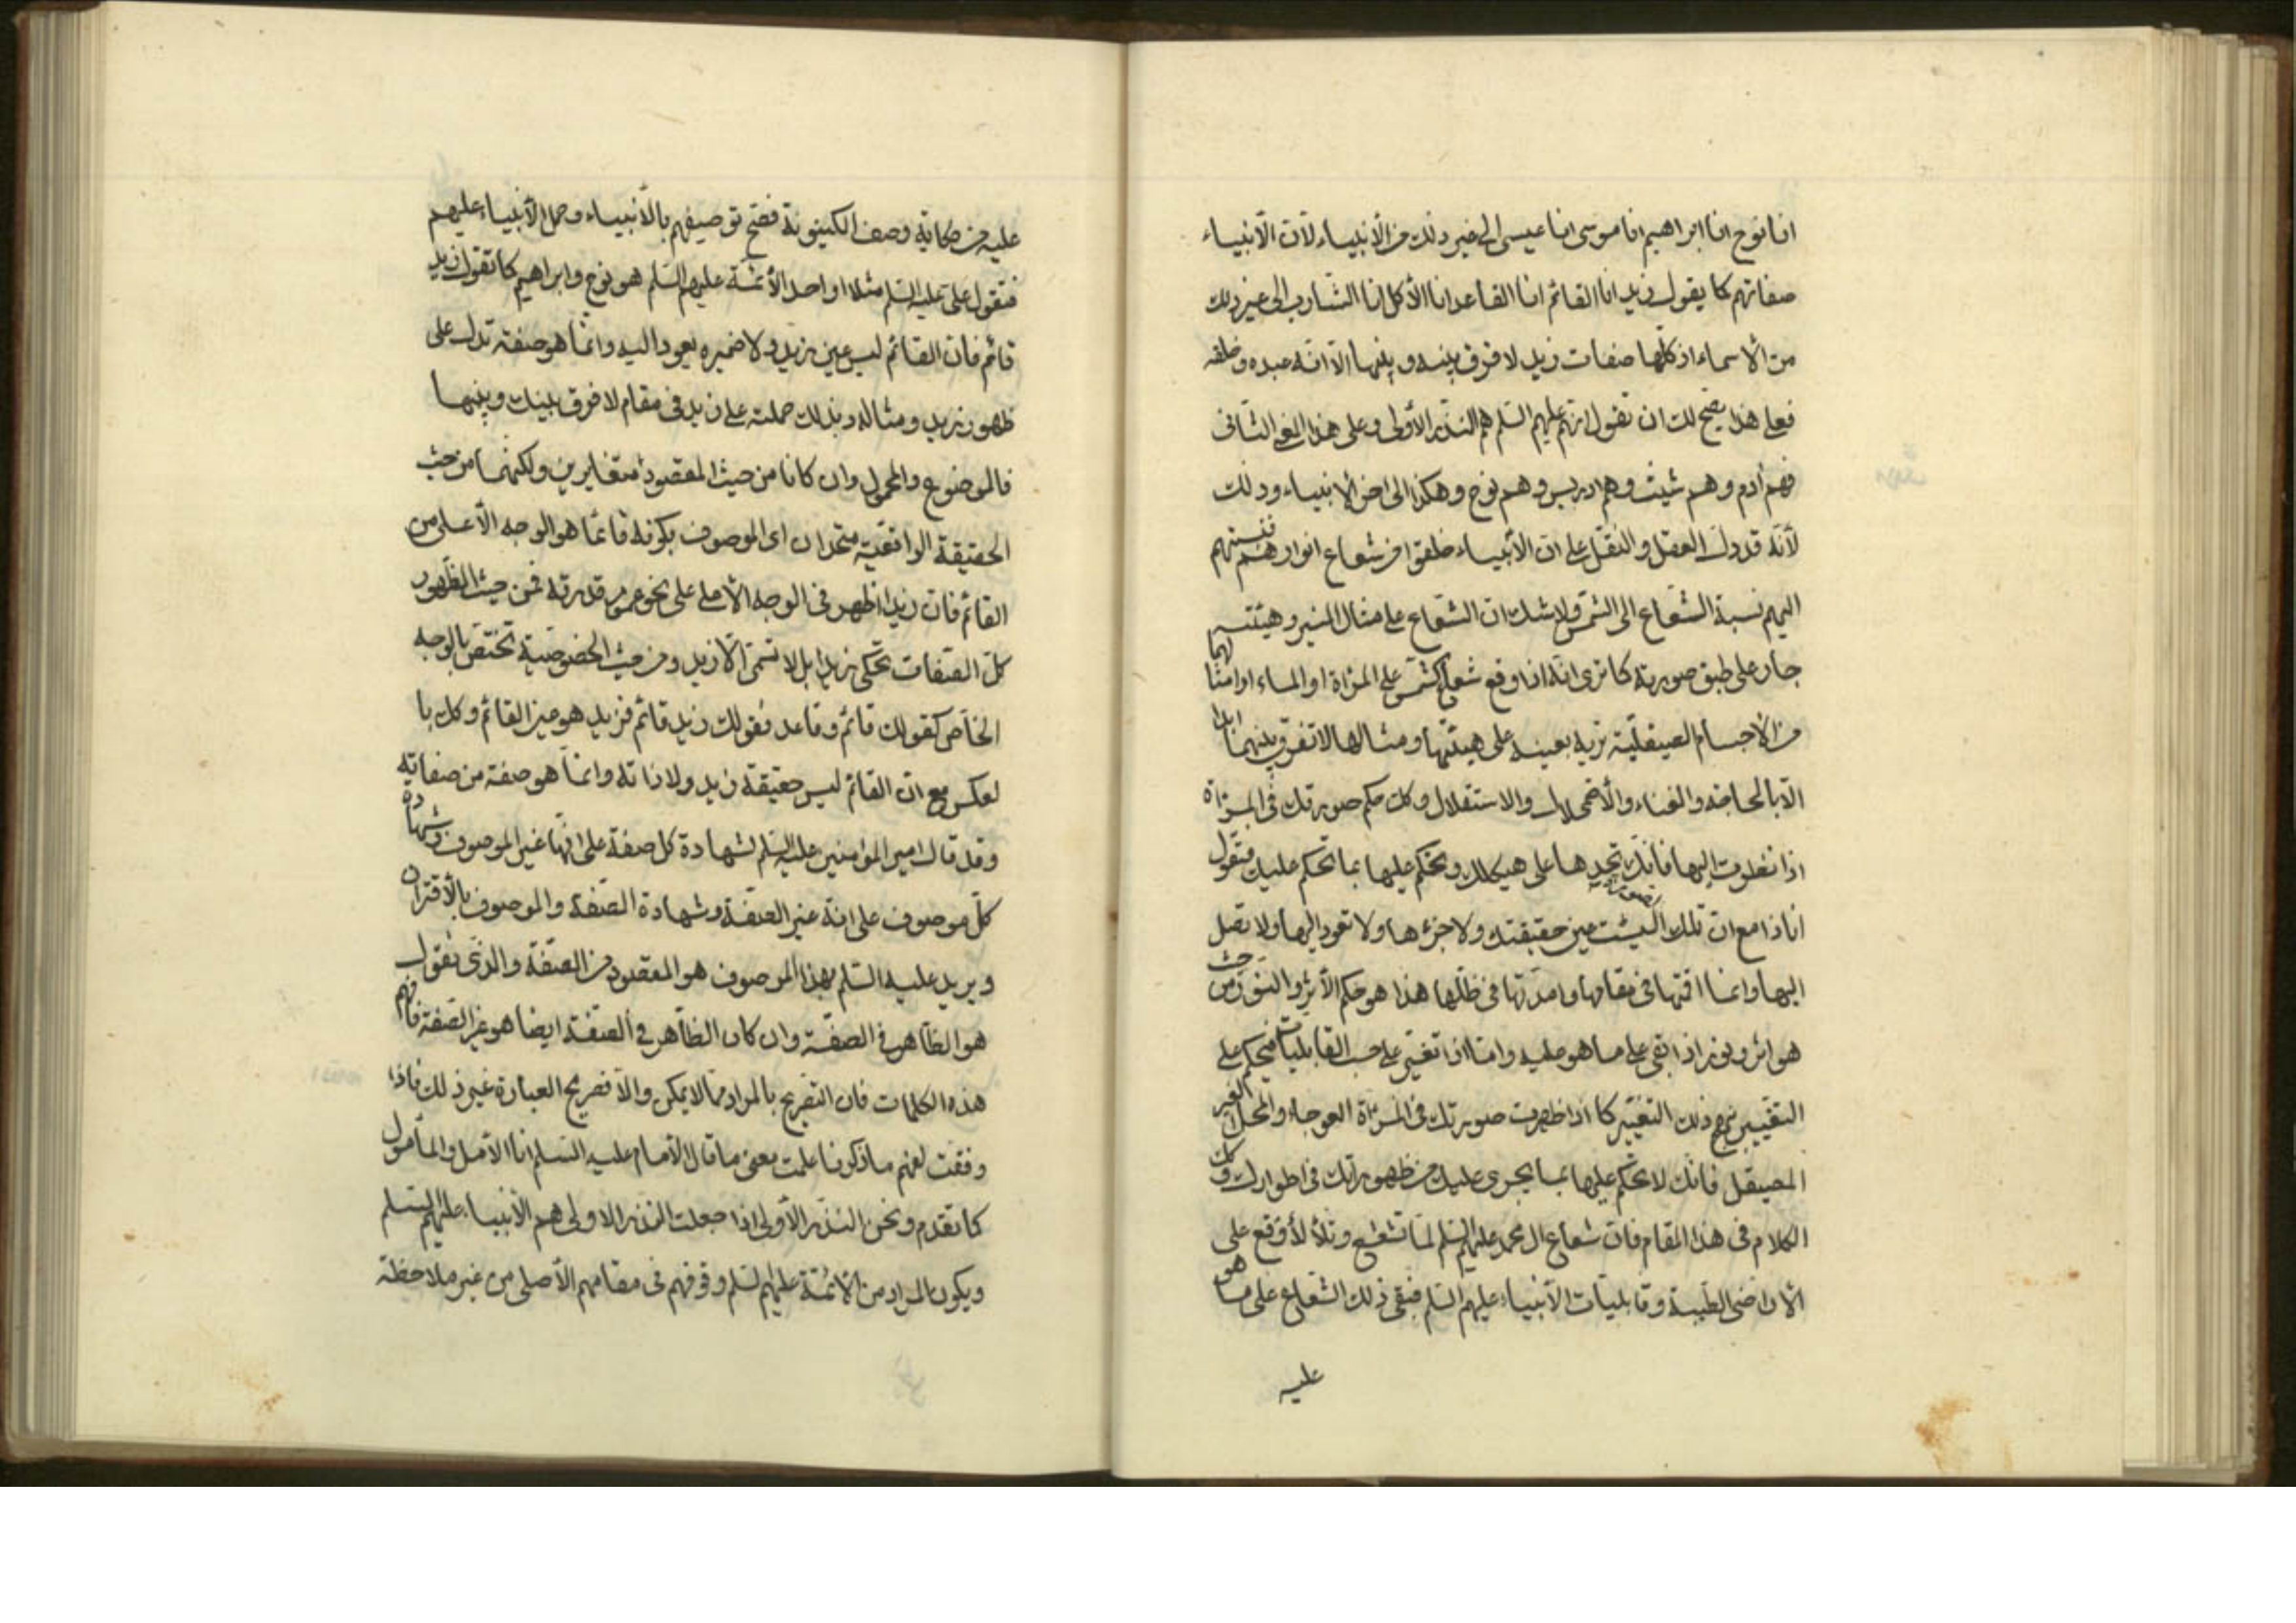 انا نوح انا ابراهيم انا موسى انا عيسى الى غير ذلك من الأنبياء لأن الأنبياء
صفاتهم كما يقول زيد انا القائم انا القاعد انا الأكل انا الشارب الى غير ذلك
من الأسماء اذ كلها صفات زيد لا فرق بينه و بينها الا انه عبده و خلقه
فعلى هذا يصح لك ان تقول انهم عليهم السلم هم النذر الأولى و على هذا المعنى الثانى
فهم أدم و هم شيث و هم ادريس و هم نوح و هكذا الى اخر الأنبياء و ذلك
لأنه قد دل العقل و النقل على ان الأنبياء خلقوا من شعاع انوارهم فنسبتهم
اليهم نسبة الشعاع الى الشمس و لا شك ان الشعاع على مثال المنير و هيئته
جار على طبق صورته كما ترى انه اذا وقع شعاع الشمس على المرءاة او الماء او امثالهما
من الأجسام الصيقلية تريه بعينه على هيئتها و مثالها لا تفرق بينهما ابدا
الا بالحاجة و الفناء و الأضمحلال و الاستقلال و كك حكم صورتك فى المرءاة
اذا نظرت اليها فانك تجدها على هيكلك و تحكم عليها بما تحكم عليك فتقول
انا ذا مع ان تلك الصورة ليست عين حقيقتك و لا جزءها و لا تعود اليها و لا تصل
اليها و انما اقمتها فى مقامها و امددتها فى ظلها هذا هو حكم الأثر و النور من حيث
هو اثر و نور اذا بقى على ما هو عليه و اما اذا تغير على حسب القابليات فيحكم على
التغيير نهج ذلك التغيير كما اذا ظهرت صورتك فى المرءاة العوجاء و المحل الغير
المصيقل فانك لا تحكم عليها بما يجرى عليك من ظهوراتك فى اطوارك و كك
الكلام فى هذا المقام فان شعاع ال محمد عليهم السلم لما تشعشع و تلألأ وقع على
الأراضى الطيبة و قابليات الأنبياء عليهم السلم فبقى ذلك الشعاع على ما هو
عليه
عليه من حكاية وصف الكينونة فصح توصيفهم بالأنبياء و حمل الأنبياء عليهم
فتقول على عليه السلم مثلا او احد الأئمة عليهم السلم هو نوح و ابراهيم كما تقول زيد
قائم فان القائم ليس عين زيد و لا ضميره يعود اليه و انما هو صفة تدل على
ظهور زيد و مثاله و بذلك حملته على زيد فى مقام لا فرق بينك و بينها
فالموضوع و المحمول و ان كانا من حيث المقصود متغايرين و لكنهما من حيث
الحقيقة الواقعية متحدان اى الموصوف بكونه قائما هو الوجه الأعلى من
القائم فان زيدا ظهر فى الوجه الأعلى على نحو عموم قدرته فمن حيث الظهور
كل الصفات تحكى زيدا بل لا تسمى الا زيد و من حيث الخصوصية تختص بالوجه
الخاص كقولك قائم و قاعد فقولك زيد قائم فزيد هو عين القائم و كك با
لعكس مع ان القائم ليس حقيقة زيد و لا ذاته و انما هو صفة من صفاته
و قد قال امير المؤمنين عليه السلم لشهادة كل صفة على انها غير الموصوف و شهادة
كل موصوف على انه غير الصفة و شهادة الصفة و الموصوف بالأقتران
و يريد عليه السلم بهذا الموصوف هو المقصود من الصفة و الذى نقول
هو الظاهر فى الصفة و ان كان الظاهر فى الصفة ايضا هو غير الصفة فافهم
هذه الكلمات فان التصريح بالمراد مما لا يمكن و الا فصريح العبارة غير ذلك فاذا
وفقت لفهم ما ذكرنا علمت معنى ما قال الأمام عليه السلم انا الأمل و المأمول
كما تقدم و نحن النذر الأولى اذا جعلت النذر الاولى هم الأنبياء عليهم السلم
و يكون المراد من الائمة عليهم السلم وقوفهم فى مقامهم الأصلى من غير ملاحظة